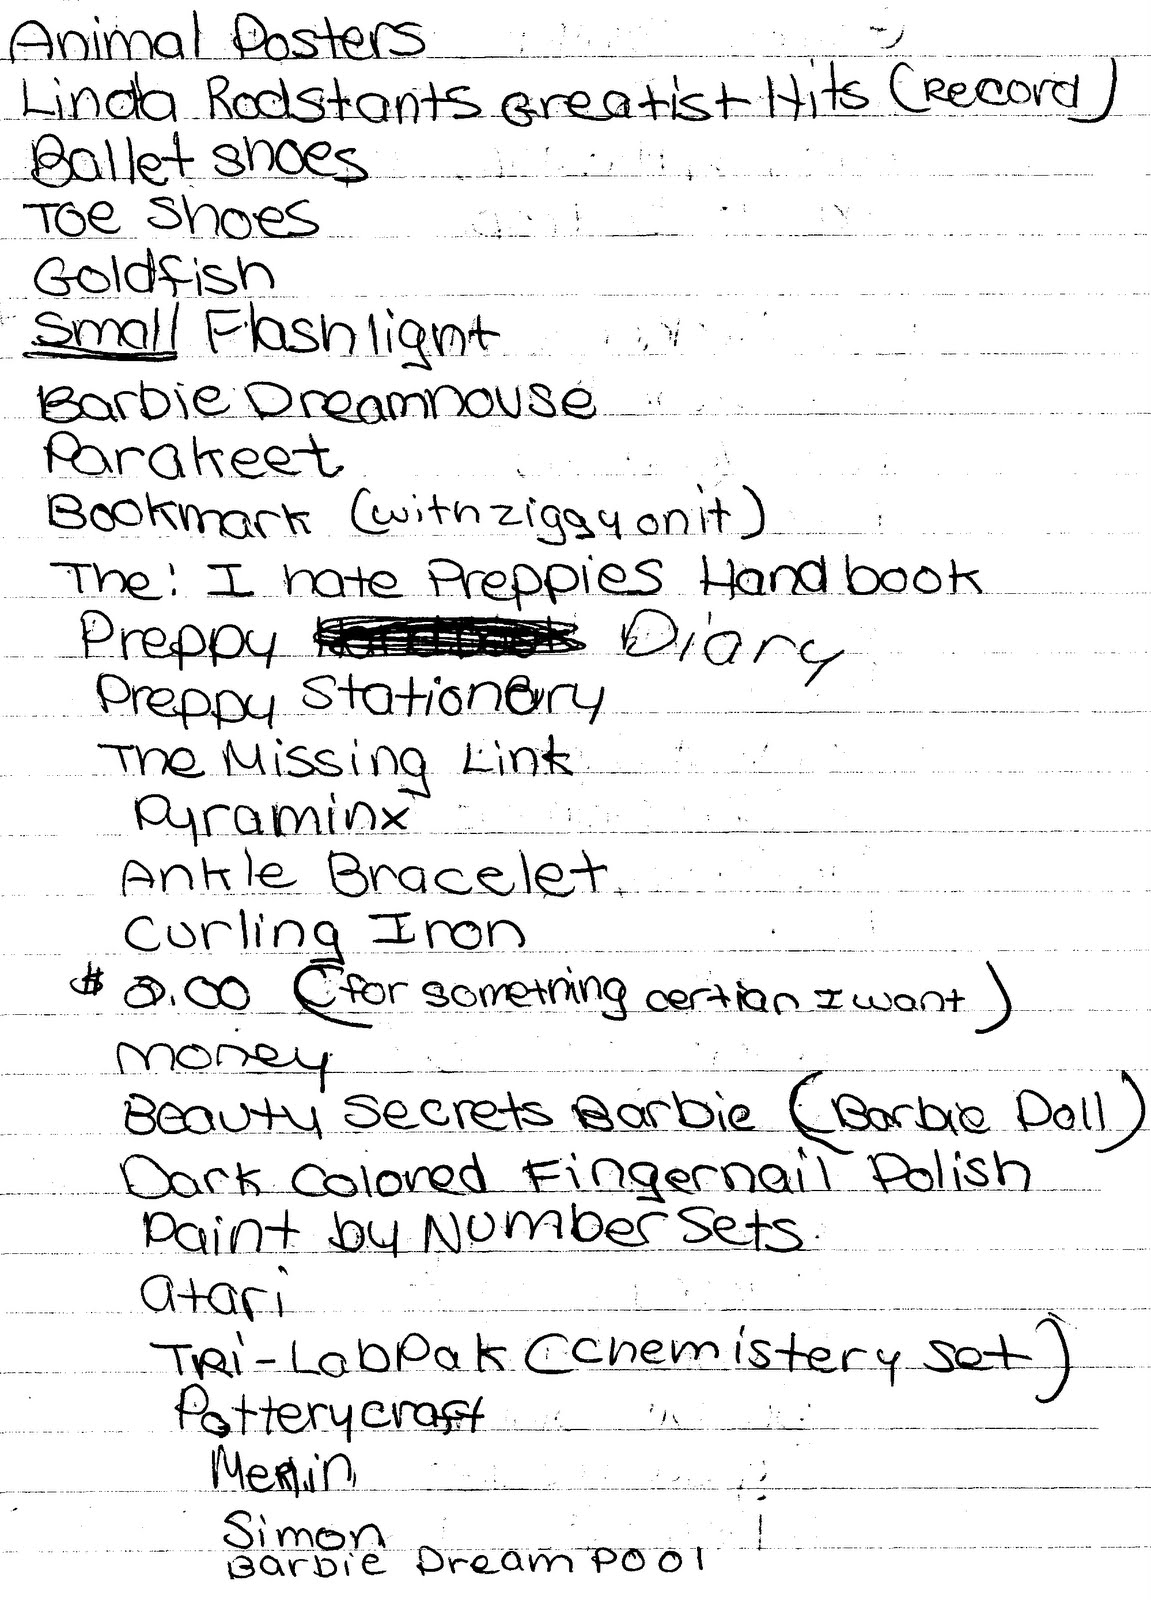 Animal Posters
Linda Rodstants Greatist Hits (Record)
Ballet shoes
Toe Shoes
Goldfish
Small Flashlight
Barbie Dreamhouse
Parakeet
Bookmark (with ziggy on it)
The: I hate Preppies Handbook
Preppy Diary
Preppy Stationery
The Missing Link
Pyraminx
Ankle Bracelet
Curling Iron
$ 8.00 (for something certian I want)
money
Beauty Secrets Barbie (Barbie Doll)
Dark Colored Fingernail Polish
Paint by Number Sets
atari
TRi-LabPak (chemistery set)
Potterycraft
Merlin
Simon
Barbie Dream Pool